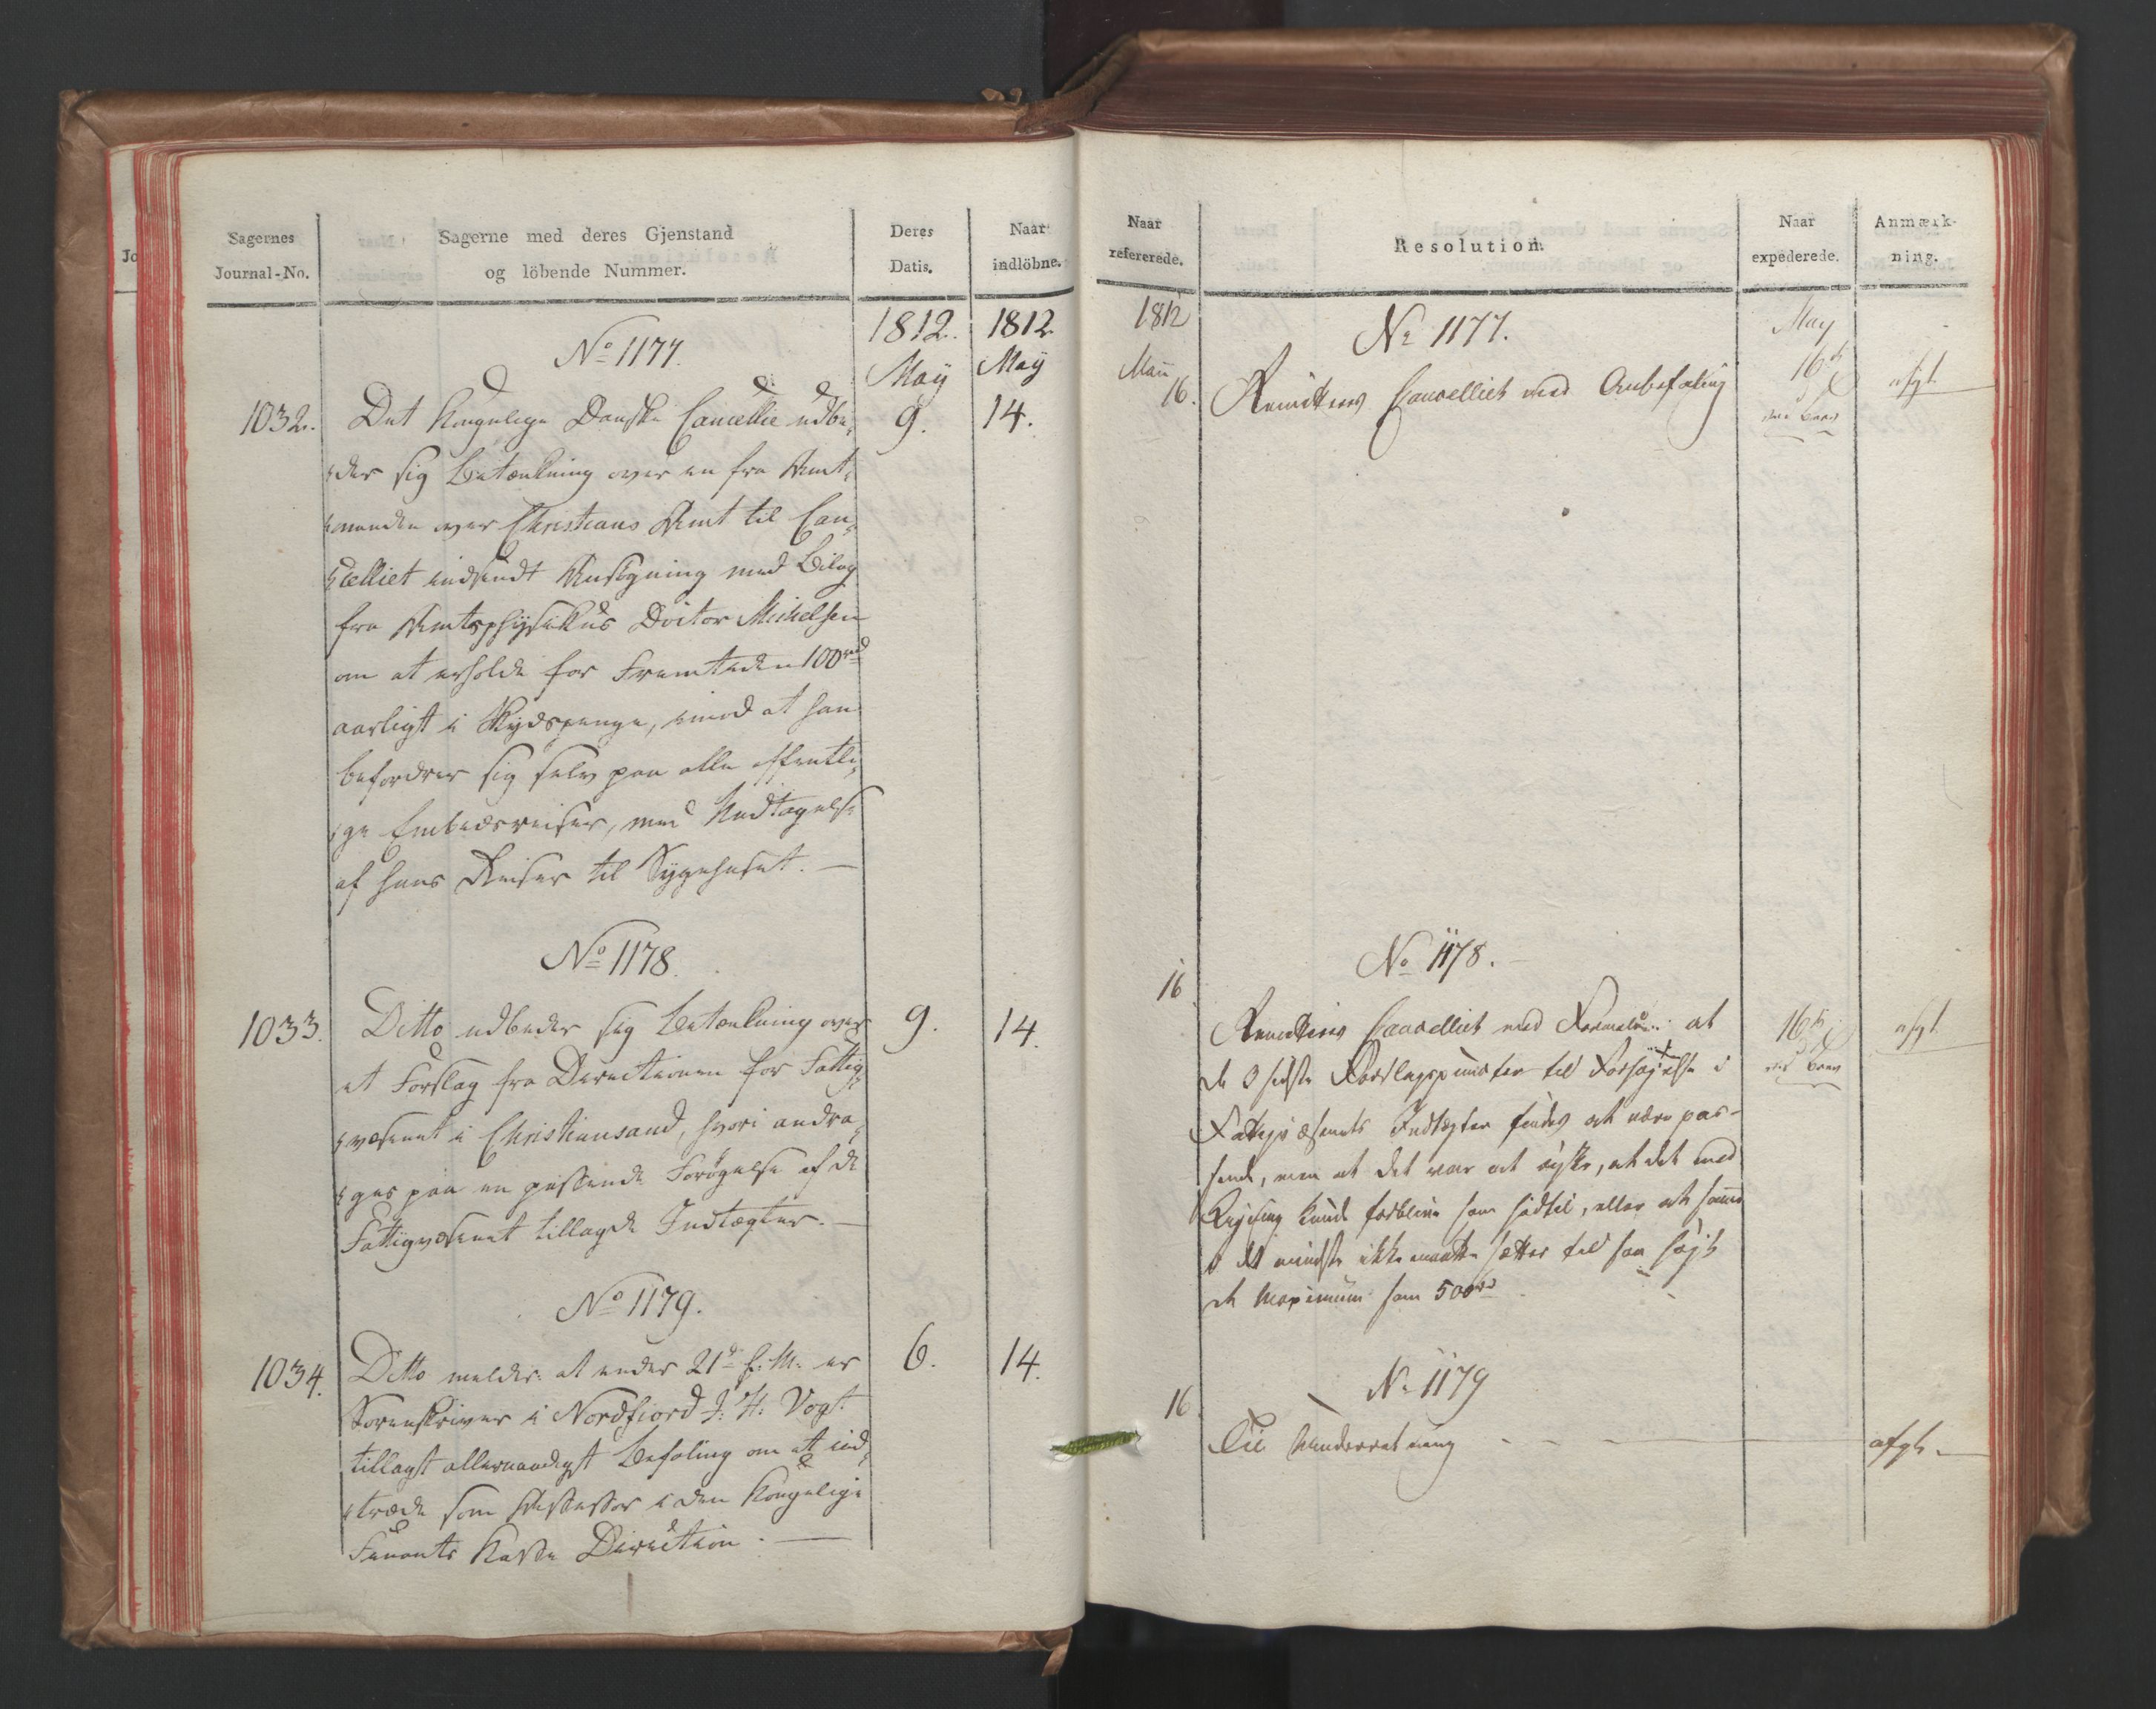 Sagernes
Journal-No.
Sagerne med deres Gjenstand
og löbende Nummer.
Deres
Datis.
Naar
indlöbne.
1812.
May
1812
May
No 1177.
1032. Det Kongelige Danske Cancellie udbe- 9. 14.
der sig Betænkning over en fra Amt-
manden over Christians Amt til Can-
celliet indsendt Ansøgning med Bilag
fra Amtsphysikus Doctor Michelsen
om at erholde for Fremtiden 100 rd
aarligt i Skydspenge, imod at han
befordrer sig selv paa alle offentli-
ge Embedsreiser, med Undtagelse
af hans Reiser til Sygehuset.
No 1178.
1033. Ditto udbeder sig Betænkning over 9. 14.
et Forslag fra Directionen for Fattig-
væsenet i Christiansand, hvori andra-
ges paa en passende Forøgelse af de
Fattigvæsenet tillagde Indtægter.
No 1179.
1034. Ditto melder at under 21de f: M: er 6. 14.
Sorenskriver i Nordfiord J: H: Vogt
tillagt allernaadigst Befaling om at ind-
træde som Assessor i den Kongelige
Finants Kasse Direction.
Naar
refererede.
Resolution.
Naar
expederede.
Anmærk-
ning.
1812
Maii
May
No 1177.
16. Remitteres Cancelliet med Anbefaling 16de afgt
ved Brev
No 1178.
16
Remitteres Cancelliet med Formeld: at 16de afgt
de 3 sidste Forslagspuncter til Forhøjelse i ved Brev
Fattigvæsenets Indtægter findes at være pas-
sende, men at det var at ønske, at det med
kunde forblive som hidtil, eller at samme
i det mindste ikke maatte sættes til saa højt
et Maximum som 500 rd
No 1179
16
Til Underretning afgt.